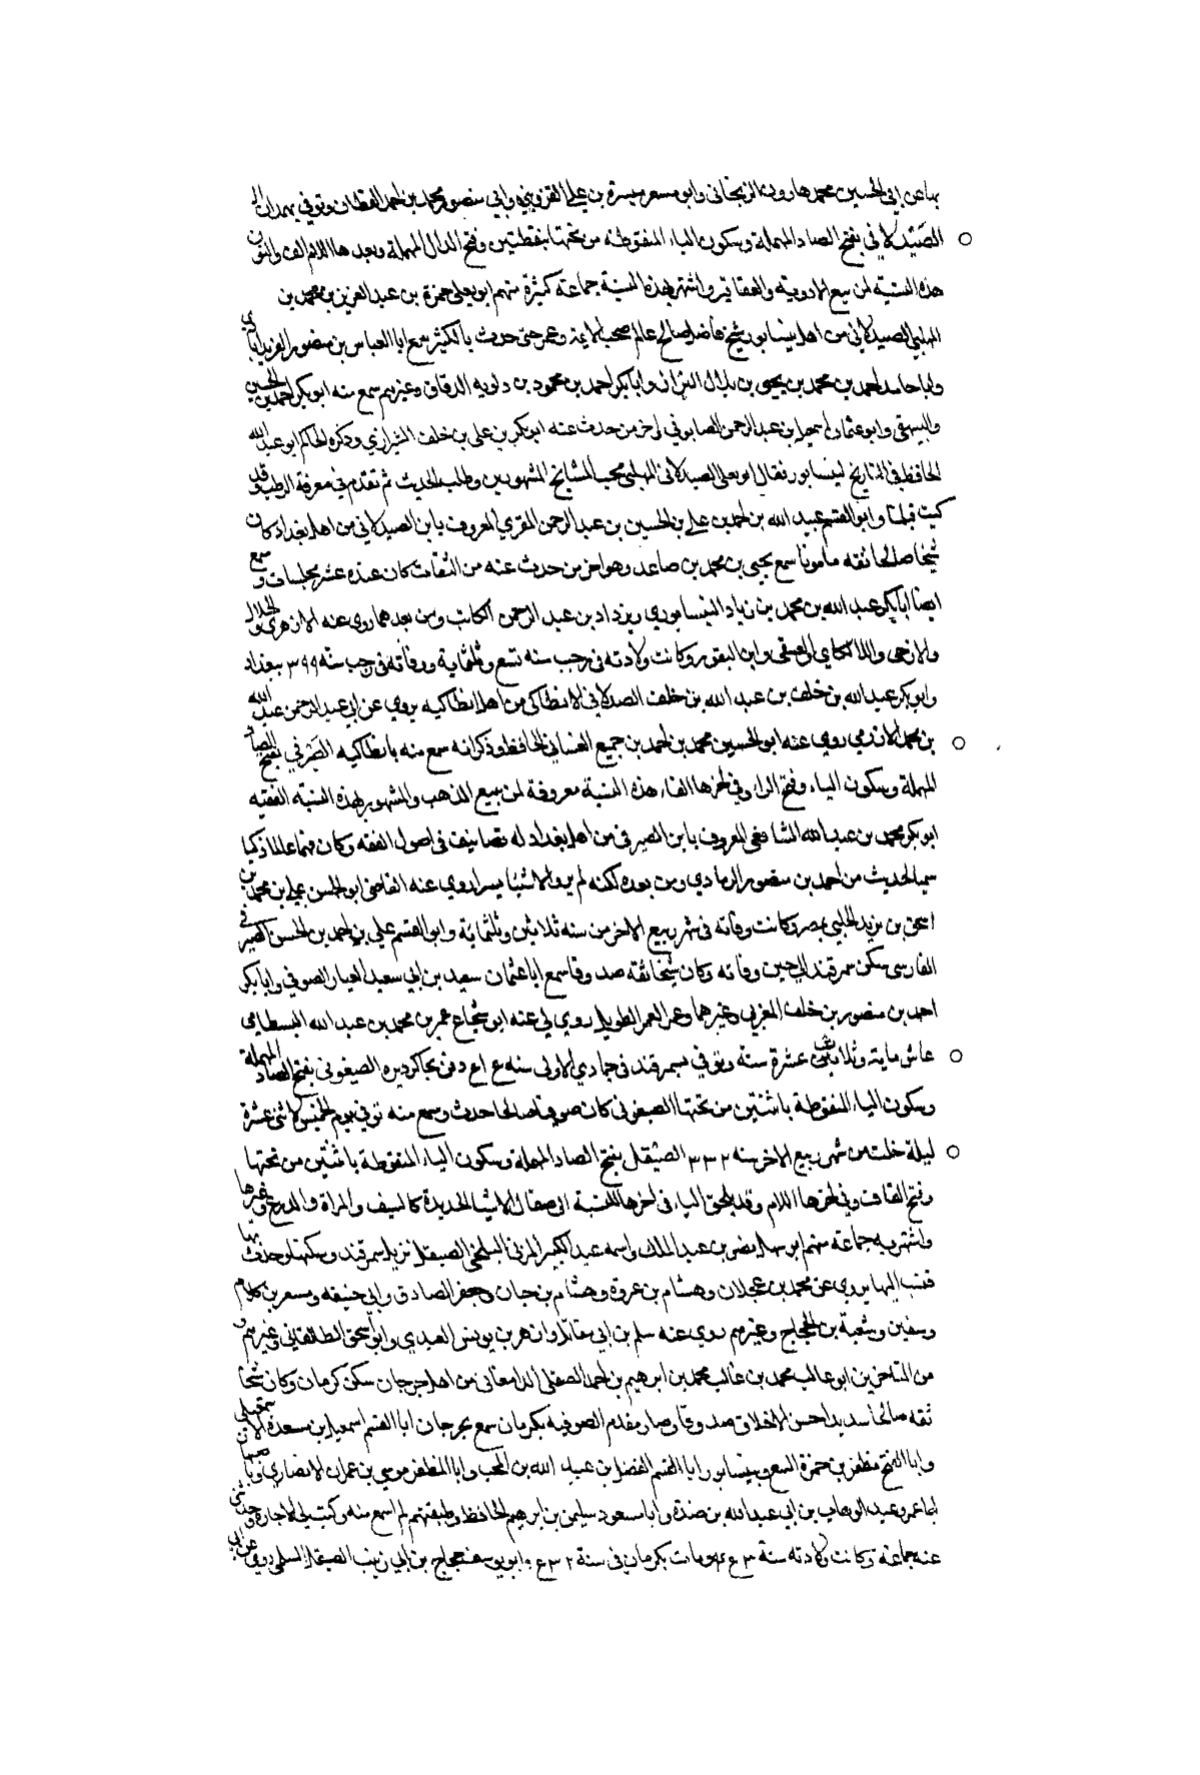 بها عن ابي الحسين محمد هارون الزنجاني وابو مسعر ميسرة بن علي القزويني وابي منصور محمد بن احمد القطان وتوفي بهمدان
الصَيْدلاني بفتح الصاد المهملة وسكون الياء المنقوطه من تحتها بنقطتين وفتح الدال المهملة وبعدها اللام الف والنون
هذه النسبة لمن يبيع الادوية والعقاقير واشتهر بهذه النسبة جماعة كثيرة منهم ابو يعلى حمزة بن عبد العزيز بن محمد بن
المهلبي الصيدلاني من اهل نيسابور شيخ فاضل صالح عالم صحب الايمة وعمر حتى حدث بالكثير سمع ابا العباس بن منصور
وابا حامد احمد بن محمد بن يحيى بن بلال البزاز وابا بكر احمد بن محمود بن دلويه الدقاق وغيرهم سمع منه ابو بكر احمد بن الحسين
والبيهقي وابو عثمان اسمعيل بن عبد الرحمن الصابوني اخر من حدث عنه ابو بكر بن علي بن خلف الشيرازي وذكره الحاكم ابو عبد الله
الحافظ في التاريخ لنيسابور فقال ابو يعلى الصيدلاني المهلبي صحب المشايخ المشهورين وطلب الحديث ثم تقدم في معرفة الطب
كتبت وابو القسم عبيد الله بن احمد بن علي بن الحسين بن عبد الرحمن المقري المعروف بابن الصيدلاني من اهل بغداد كان
شيخا صالحا ثقه مامونا سمع يحيى بن محمد بن صاعد وهو اخر من حدث عنه من الثقات كان عنده عشر مجلسات و سمع
ايضا ابا بكر عبد الله بن محمد بن زياد النيسابوري ويزداد بن عبد الرحمن الكاتب ومن بعدهما روى عنه الازهري والخلال
والازجي والعتيقي وابن النقور وكانت ولادته في رجب سنه تسع وثلثماية ووفاته في رجب سنة ٣٩٩ ببغداد
وابو بكر عبد الله بن خلف بن عبد الله بن خلف الصدلاني الانطاكي من اهل انطاكيه يروي عن ابي عبد الرحمن عبد الله
بن محمد الاذرمي روى عنه ابو الحسين محمد بن احمد بن جميع الغساني الحافظ وذكر انه سمع منه بانطاكيه الصَيْرفي بفتح الصاد
المهملة وسكون الياء وفتح الراء وفي اخرها الفاء هذه النسبة معروفة لمن يبيع الذهب والمشهور بهذه النسبة الفقيه
ابو بكر محمد بن عبد الله الشافعي المعروف بابن الصيرفي من اهل بغداد له تصانيف في اصول الفقه وكان فهما عالما ذكيا
سمع الحديث من احمد بن منصور الرمادي ومن بعده لكنه لم يرو الا شيئا يسيرا روى عنه القاضي ابو الحسن علي بن محمد بن
اسحق بن يزيد الحلبي بمصر وكانت وفاته في شهر ربيع الاخر من سنه ثلاثين وثلثماية وابو القسم علي بن احمد بن الحسن الصيرفي
الفارسي سكن سمرقند الى حين وفاته وكان شيخا ثقه صدوقا سمع ابا عثمان سعيد بن ابي سعيد العيار الصوفي وابا بكر
احمد بن منصور بن خلف المغربي وغيرهما وعمر العمر الطويل روى لي عنه ابو شجاع عمر بن محمد بن عبد الله البسطامي
عاش ماية وثلاث عشرة سنة وتوفي بسمرقند في جمادي الاولى سنه ودفن بجاكرديزه الصيغوني بفتح الصاد المهملة
وسكون الياء المنقوطة باثنتين من تحتها الصيغوني كان صوفيا صالحا حدث وسمع منه توفي يوم الخميس لاثنى عشرة
ليلة خلت من شهر ربيع الاخر سنه ٣٣٢ الصَيْقل بفتح الصاد المهملة وسكون الياء المنقوطة باثنتين من تحتها
وفتح القاف وفي اخرها اللام وقد يلحق الياء في اخرها للنسبة الى صقال الاشيا الحديدة كالسيف والمراة والدرع وغيرها
واشتهر به جماعة منهم ابو سهل نصر بن عبد الملك واسمه عبد الكبير المزني البلخي الصيقل نزيل سمرقند وسكنها وحدث بها
فنسب اليها يروي عن محمد بن عجلان وهشام بن عروة وهشام بن حسان وجعفر الصادق وابي حنيفه ومسعر بن كدام
وسفين وشعبة بن الحجاج وغيرهم روى عنه سلم بن ابي مقاتل وازهر بن يونس العبدي وابو اسحق الطالقاني وغيرهم و
من المتاخرين ابو غالب محمد بن غالب محمد بن ابرهيم بن احمد الصيقلي الدامغاني من اهل جرجان سكن كرمان وكان شيخا
ثقه صالحا سديدا حسن الاخلاق صدوقا وصار مقدم الصوفيه بكرمان سمع بجرجان ابا القسم اسمعيل بن مسعدة
وابا الفتح مظفر بن حمزة وبنيسابور ابا القسم الفضل بن عبد الله بن المحب وابا المظفر موسى بن عمران الانصاري
ابا عمرو عبد الوهاب بن ابي عبد الله بن مندة وابا مسعود سليمن بن ابرهيم الحافظ وطبقتهم لم اسمع منه وكتب لي الاجازة وحدثني
عنه جماعة وكانت ولادته سنة ومات بكرمان في سنة وابو يوسف حجاج بن ابي زينب الصيقل السلمي روى عن ابي